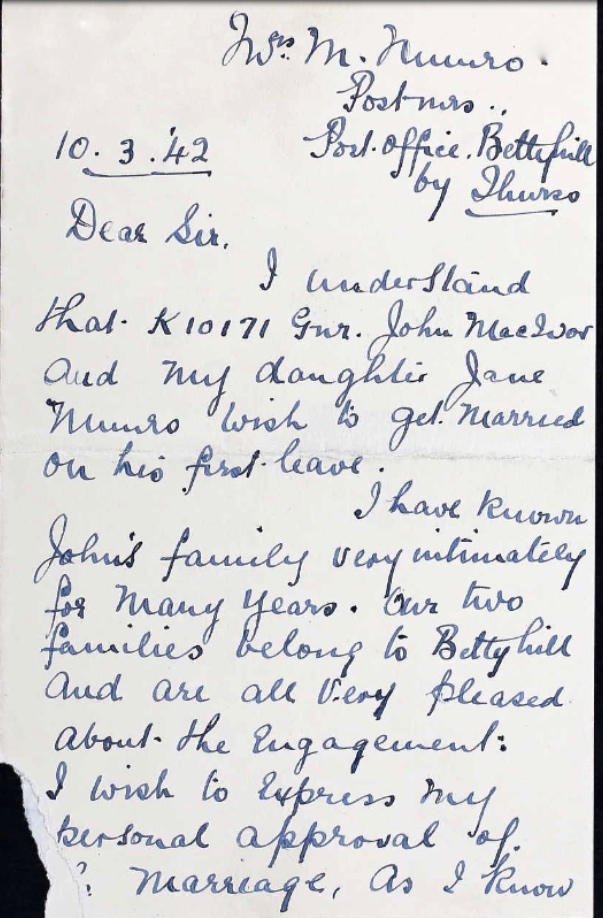 Mrs. M. Munro.
Postmrs..
10.3.'42 Post. Office. Bettyhill
by Thurso
Dear Sir.
I understand
that. K10171 Gnr. John MacIvor
and my daughter Jane
Munro wish to get. married
on his first. leave.
I have known
John's family very intimately
for many years. Our two
families belong to Bettyhill
and are all very pleased
about. the Engagement:
I wish to Express my
personal approval of.
marriage, as I know